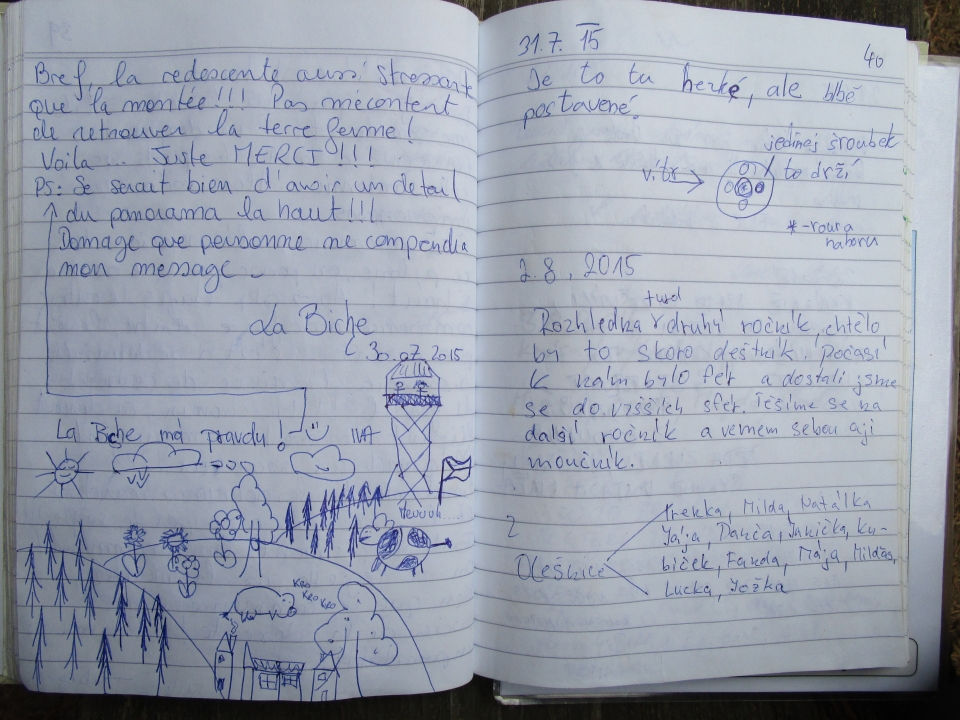 Bref, la redescente aussi stressante
que la montée!!! Pas mécontent
de retrouver la terre ferme!
Voila ... Juste MERCI!!!
PS: Se serait bien d'avoir un detail
du panorama la haut!!!
Domage que personne ne comprendra
mon message.
La Biche
30.07.2015
La Biche má pravdu! IVA
Heuuuh...
KRO
KRO KRO
40
31.7. 15
Je to tu hezké, ale blbě
postavené.
jedinej šroubek
to drží
vítr
*-roura
nahoru
2.8.2015
tusd
Rozhledna druhý ročník, chtělo
by to skoro deštník. Počasí
k nám bylo fér a dostali jsme
se do vyšších sfér. Těšíme se na
další ročník a vemem sebou aji
moučník.
z
Olešnice
Milda, Natálka
Jája, Danča, Janička, Ku-
bíček, Fanda, Mája, Mildas,
Lucka, Jožka